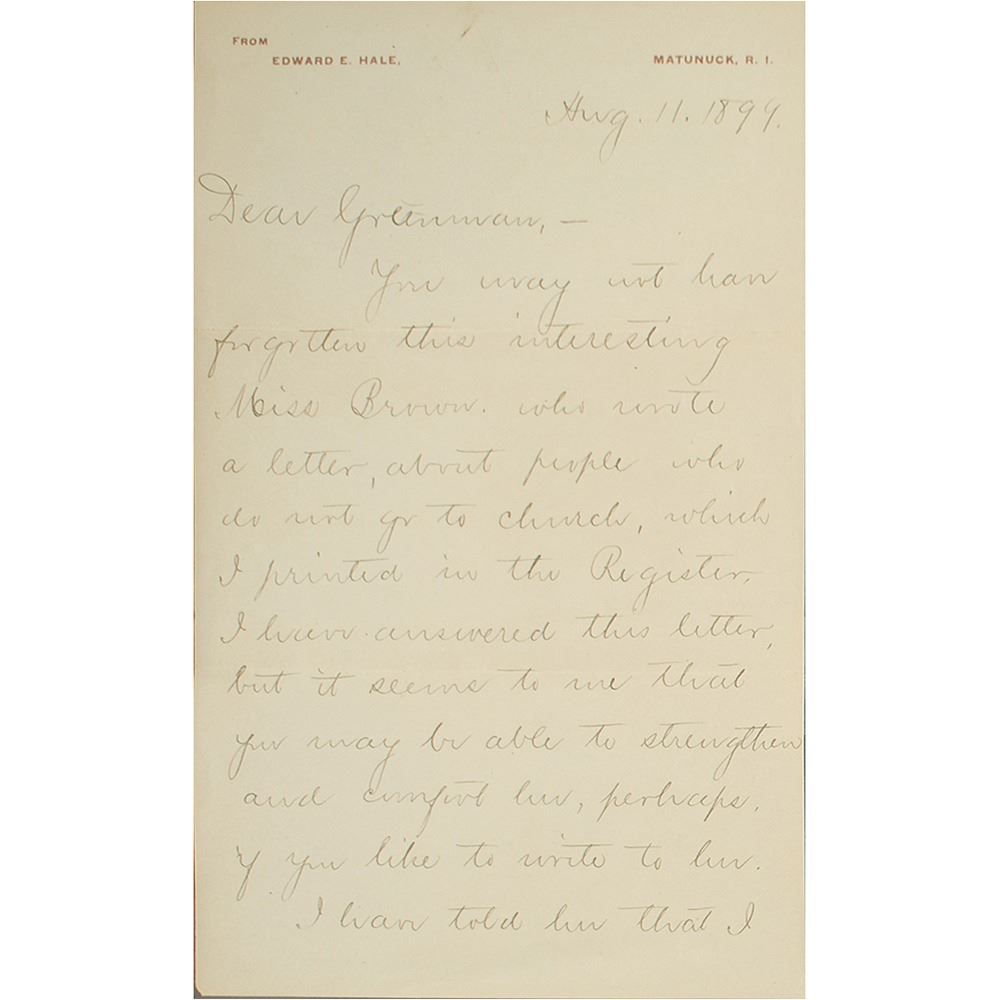 FROM
EDWARD E. HALE,
MATUNUCK, R. I.
Aug. 11. 1899.
Dear Greenman, —
You may not have
forgotten this interesting
Miss Brown. who wrote
a letter, about people who
do not go to church, which
I printed in the Register.
I have answered this letter,
but it seems to me that
you may be able to strengthen
and comfort her, perhaps,
if you like to write to her.
I have told her that I